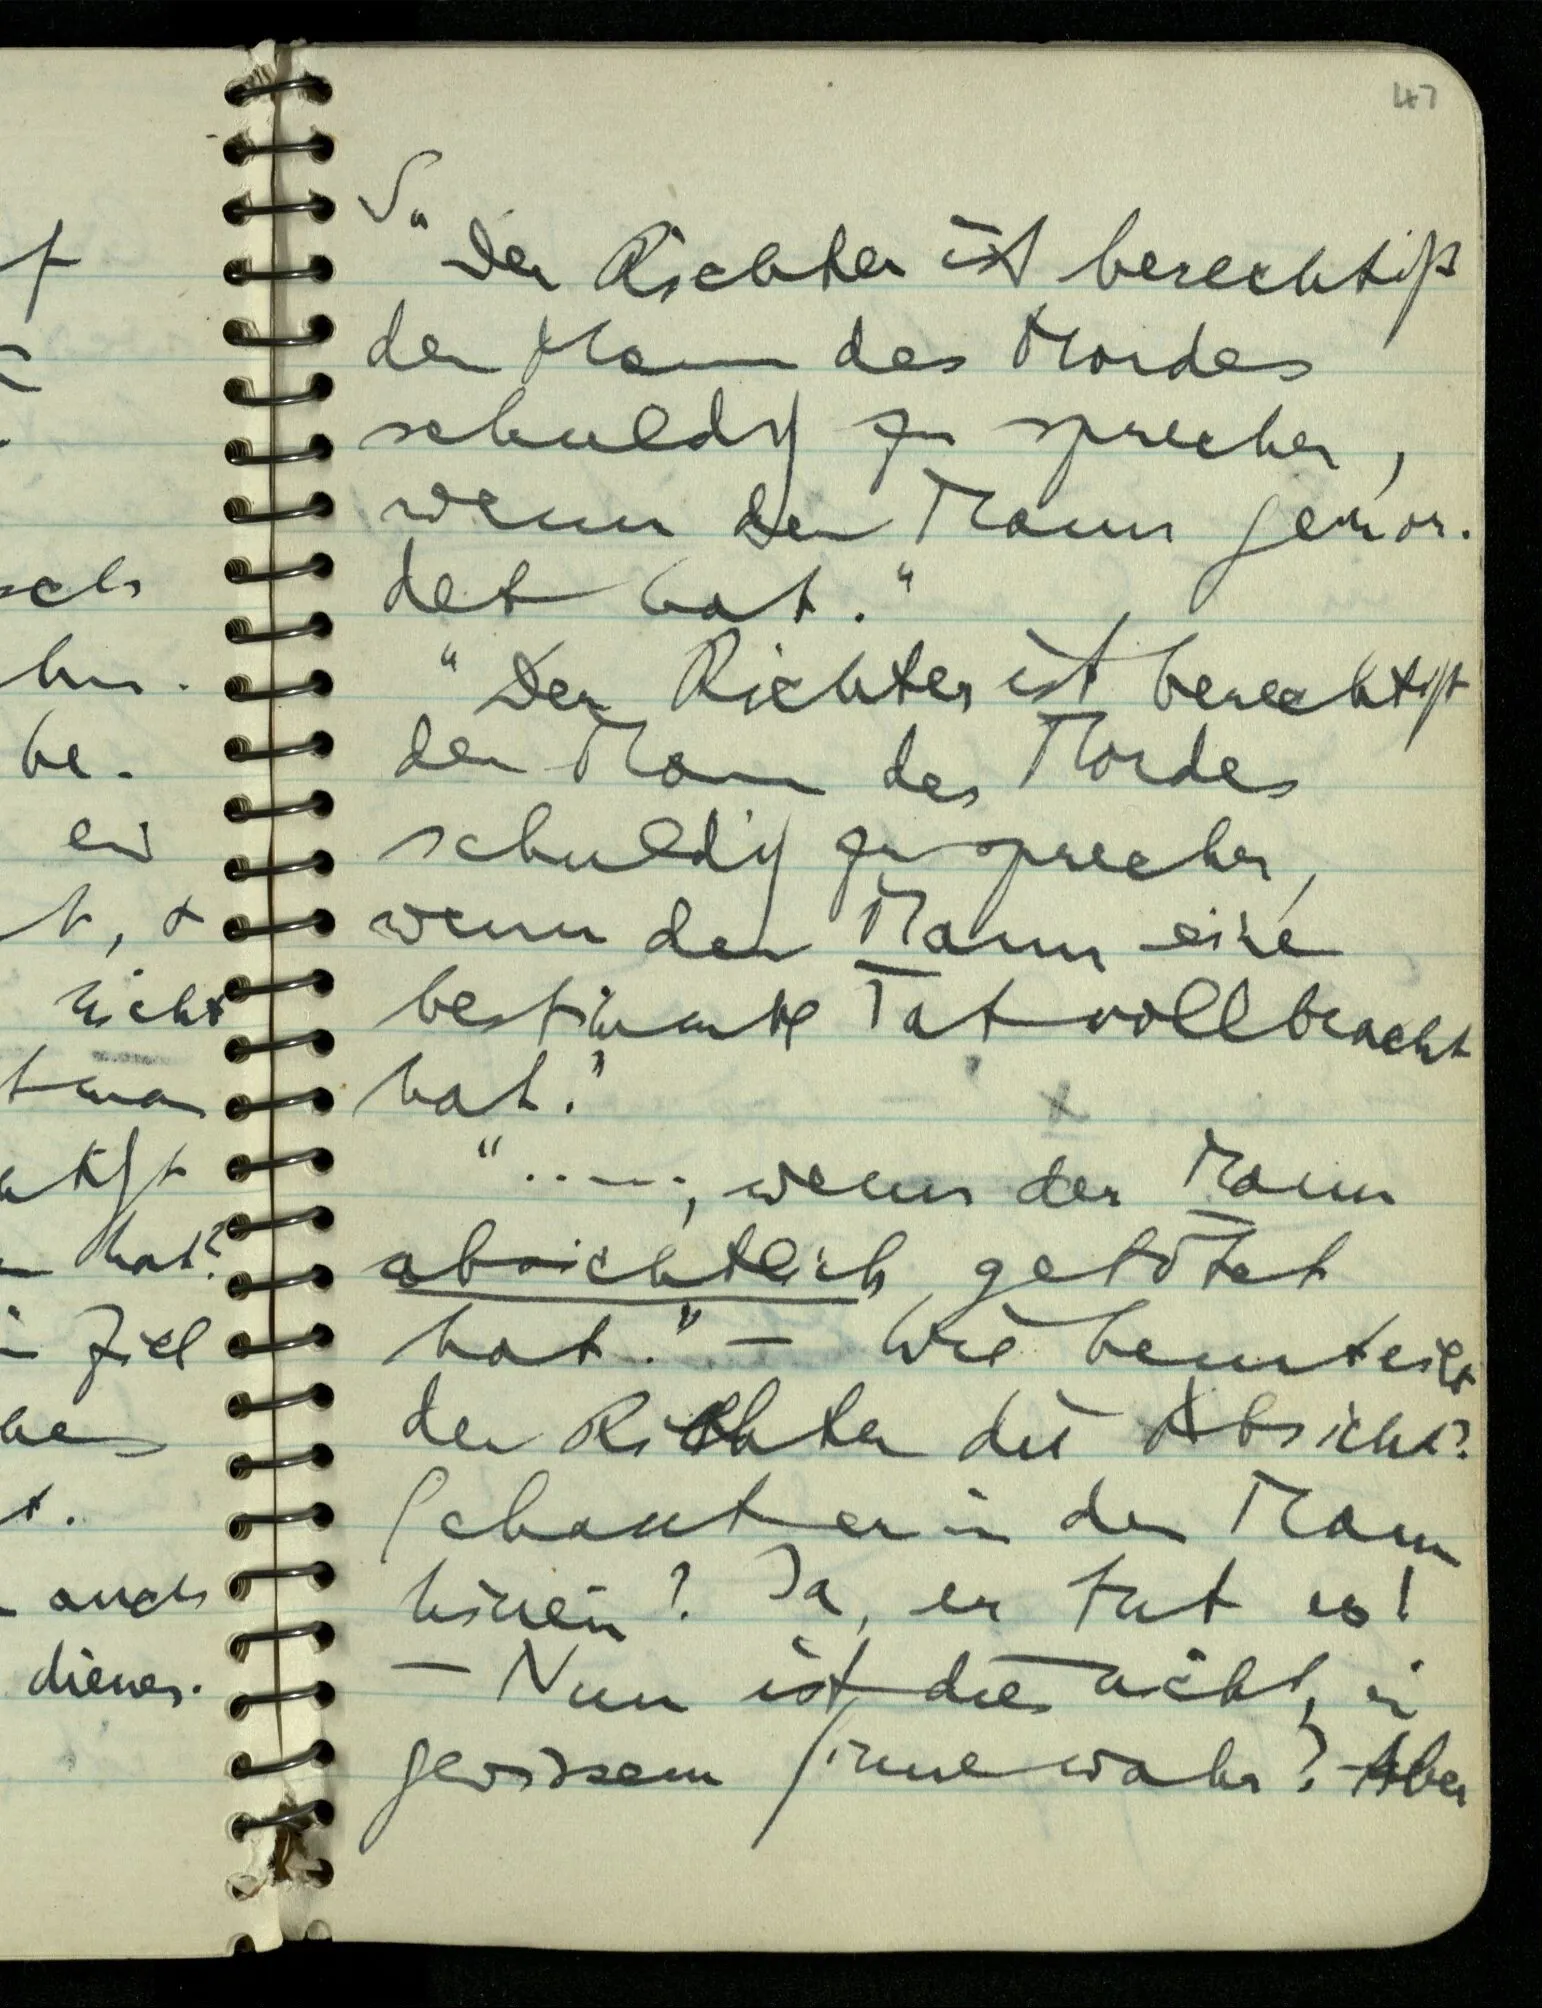 47
"Der Richter ist berechtigt
den Mann des Mordes
schuldig zu sprechen,
wenn der Mann gemor-
det hat."
"Der Richter ist berechtigt
den Mann des Mordes
schuldig zu sprechen,
wenn der Mann eine
bestimmte Tat vollbracht
hat."
"....., wenn der Mann
absichtlich getötet
hat." – Wie beurteilt
der Richter die Absicht?
Schaut er in den Mann
hinein? Ja, er tut es!
– Nun ist dies nicht, in
gewissem Sinne wahr? – Aber
f
sch
be.
ein
t, &
nicht
hat?
Ziel
auch
dienen.